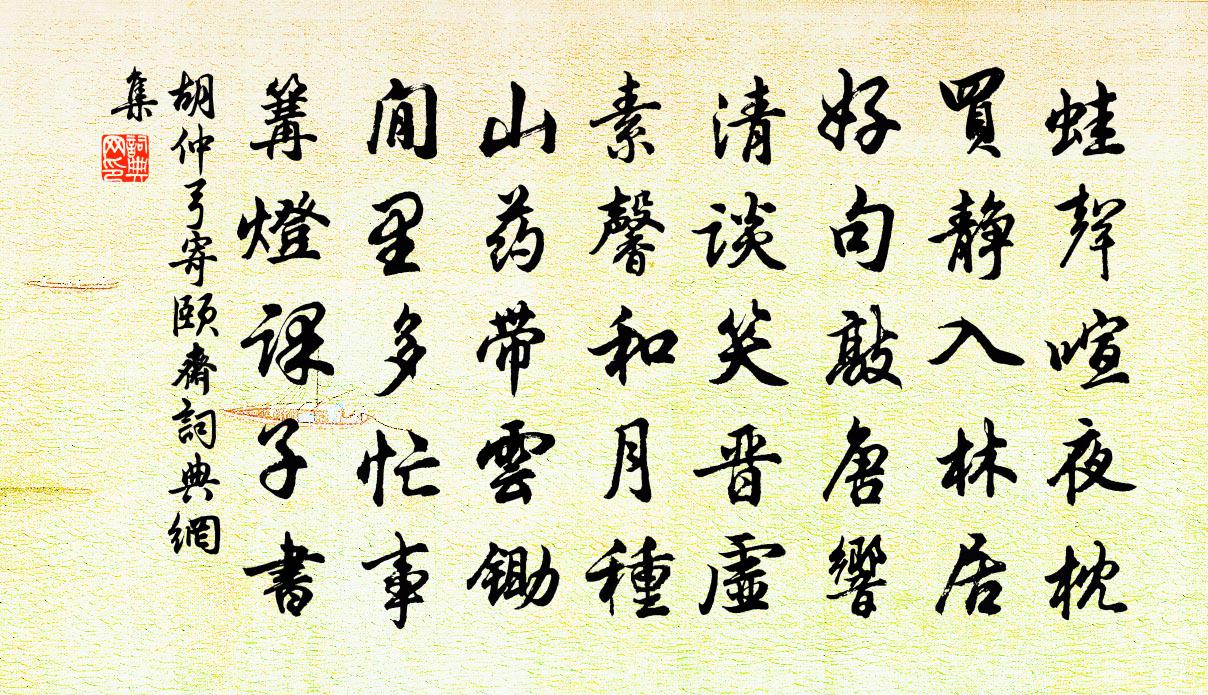 蛙聲喧夜枕
買靜入林居
好句敲唐響
清談笑晋虛
素馨和月種
山药带雲鋤
閒里多忙事
篝燈課子書
胡仲弓寄頤齋詞典網
集
詞典網印